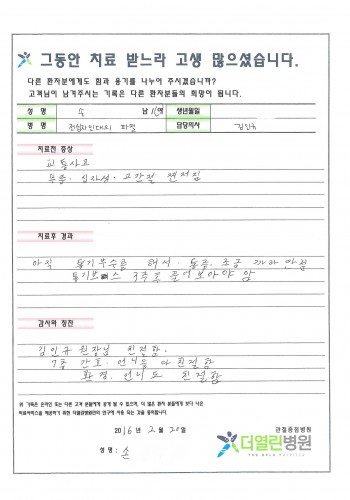 그동안 치료 받느라 고생 많으셨습니다.
다른 환자분에게도 힘과 용기를 나누어 주시겠습니까?
고객님이 남겨주시는 기록은 다른 환자분들의 희망이 됩니다.
성 명 손 남/여 생년월일
병 명 전십자인대 파열 담당의사 김인규
치료전 증상
교통사고
무릎. 십자성. 고관절
치료후 경과
아직 통기부수를 해서. 통증. 조금
3주를 풀어보아야 암
감사와 칭찬
김인규 원장님 친절함.
7층 간호. 언니들 다 친절함
환경. 언니도 친절함
위 기록은 온라인 또는 다른 고객 분들에게 공개 될 수 있으며, 더 많은 환자 분들에게 보다 나은
의료서비스를 제공하기 위한 더열린병원만의 연구에 사용 되는 것을 동의합니다.
2016년 2월 20일
성명 : 손
관절중점병원
더열린병원
THE OPEN